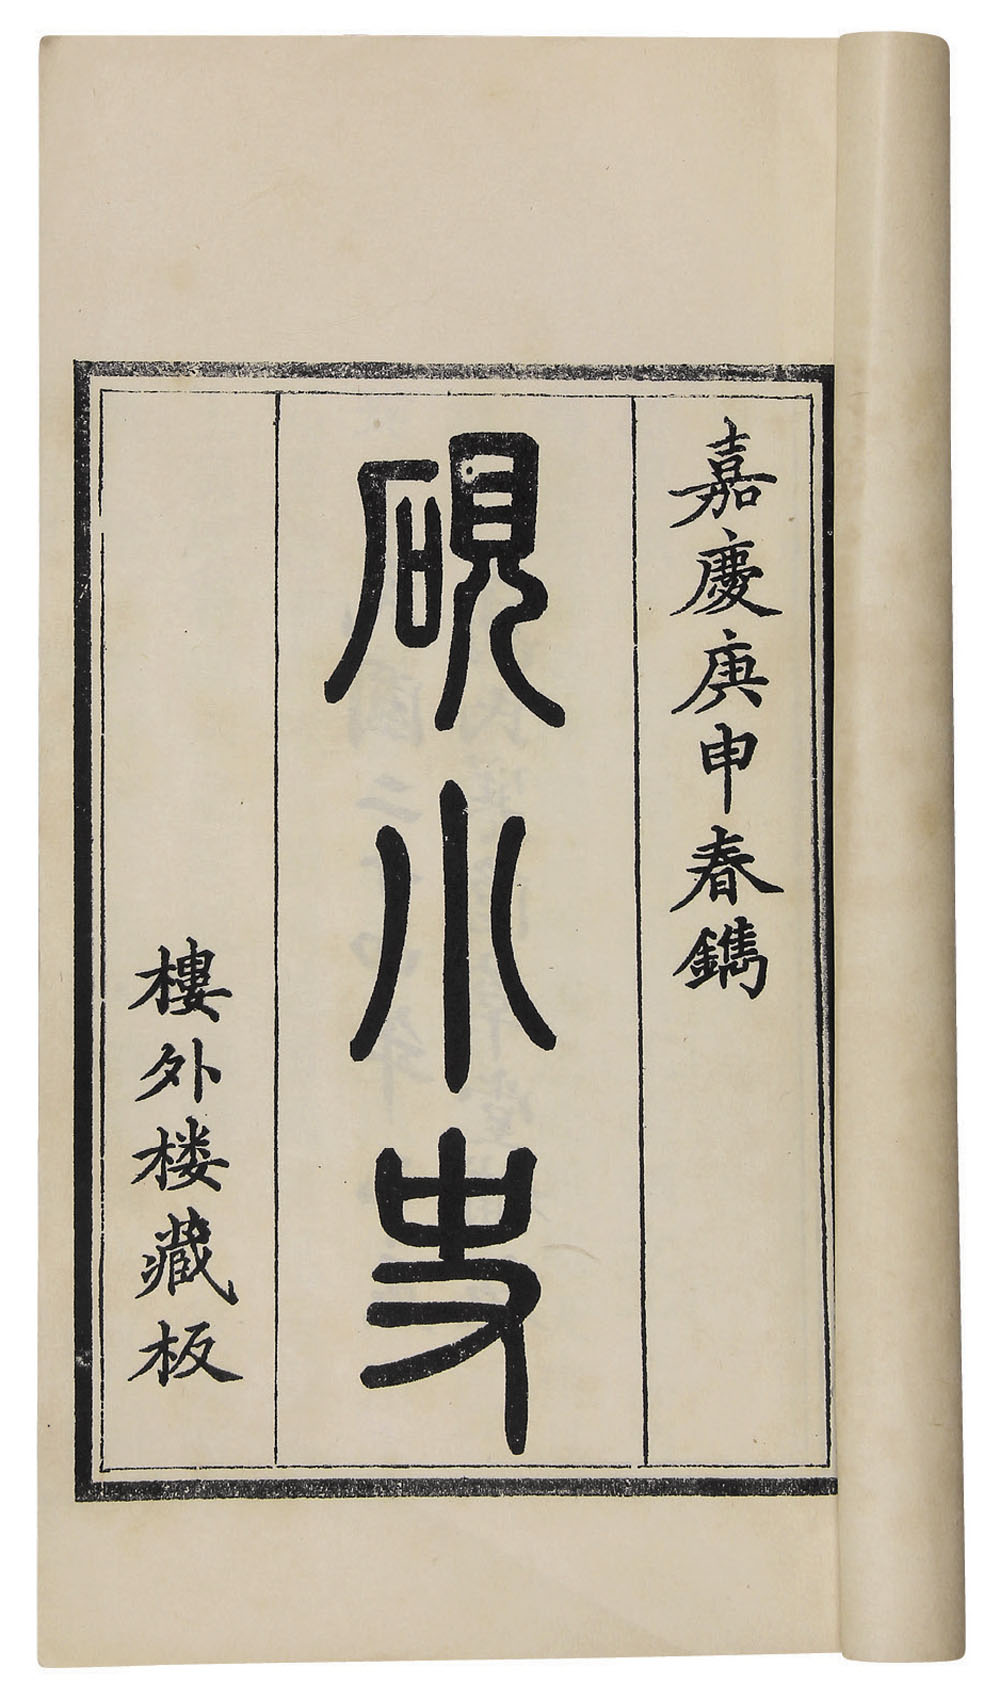 嘉慶庚申春鐫
硯小史
樓外楼藏板